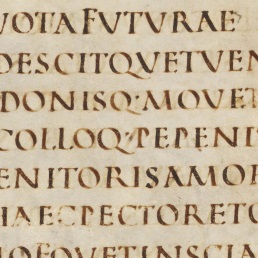 VOTAFUTURAE
DESCITQUETUEN
DONISQ·MOUET
COLLOQ·PEPEN
ENITORISAMOR
HAECPECTORETO
IOFOUETINSCIA